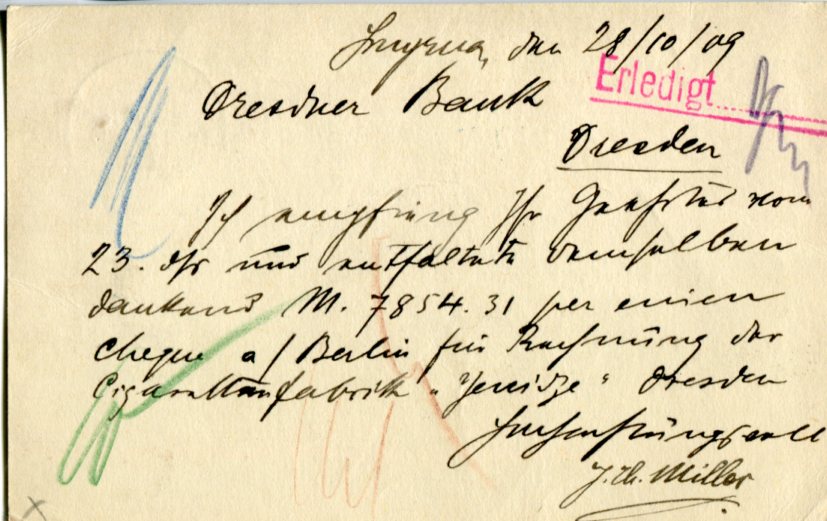 Smyrna, den 28/10/09
Erledigt
Dresdner Bank
Dresden
Ich empfing Ihr Geehrtes vom
23. ds und entfaltete demselben
dankend M. 7854.31 per einen
Cheque a/Berlin für Rechnung der
Cigarettenfabrik „Yenidze“ Dresden
Hochachtungsvoll
Miller